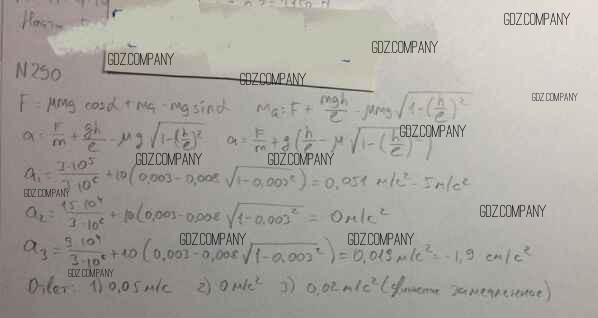 GDZ.COMPANY
GDZ.COMPANY
GDZ.COMPANY
N 290
GDZ.COMPANY
F = μmg cosα + ma - mg sinα   ma = F + mgh/e - μmg √(1-(h/e)²)
GDZ.COMPANY
a = F/m + gh/e - μg √(1-(h/e)²)   a = F/m + g(h/e - μ √(1-(h/e)²))
GDZ.COMPANY
GDZ.COMPANY
GDZ.COMPANY
a₁ = 3·10⁵/3·10⁶ + 10(0,003-0,008 √(1-0.003²)) = 0,051 м/с² - 5м/с²
GDZ.COMPANY
a₂ = 15·10⁴/3·10⁶ + 10(0,003-0,008 √(1-0.003²) = 0м/с²
GDZ.COMPANY
GDZ.COMPANY
GDZ.COMPANY
a₃ = 9·10⁴/3·10⁶ + 10(0,003-0,008 √(1-0.003²)) = 0,019 м/с² = -1,9 см/с²
GDZ.COMPANY
1) 0,05 м/с 2) 0 м/с² 3) 0,02 м/с²